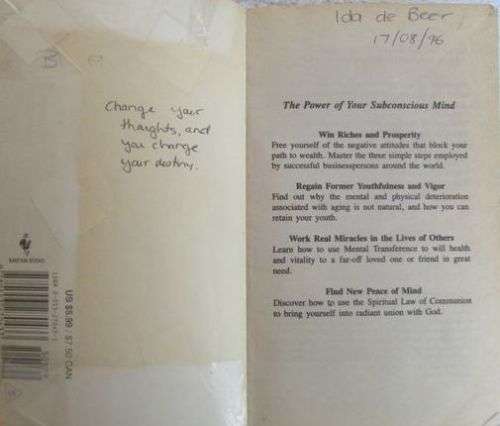 Change your
thoughts, and
you change
your destiny.
BANTAM BOOKS
US $5.99 $7.50 CAN
Ida de Beer
17/08/96
The Power of Your Subconscious Mind
Win Riches and Prosperity
Free yourself of the negative attitudes that block your
path to wealth. Master the three simple steps employed
by successful businesspersons around the world.
Regain Former Youthfulness and Vigor
Find out why the mental and physical deterioration
associated with aging is not natural, and how you can
retain your youth.
Work Real Miracles in the Lives of Others
Learn how to use Mental Transference to will health
and vitality to a far-off loved one or friend in great
need.
Find New Peace of Mind
Discover how to use the Spiritual Law of Communion
to bring yourself into radiant union with God.